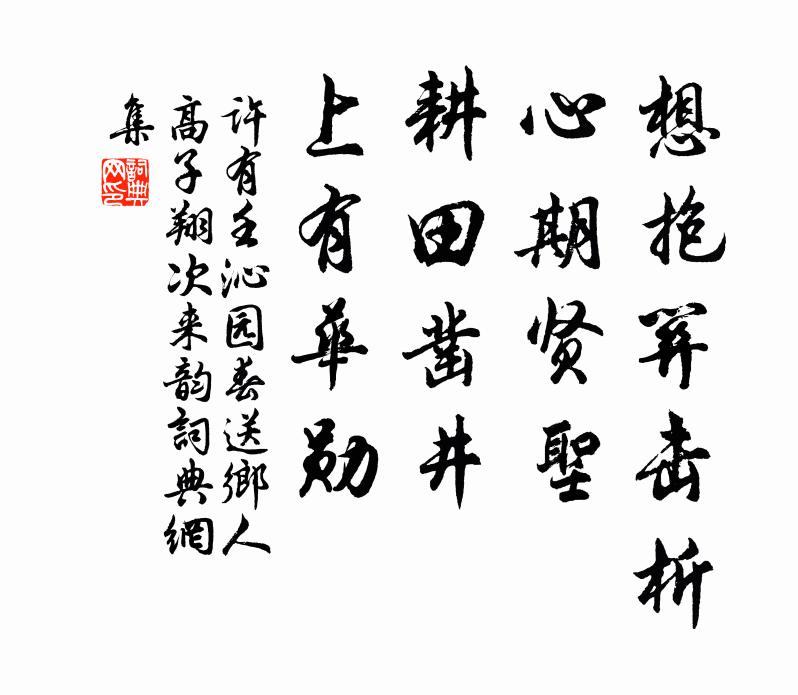 想抱关击柝
心期贤聖
耕田凿井
上有華勋
許有壬沁园春送鄉人
高子翔次来韵詞典網
集
詞典
网印